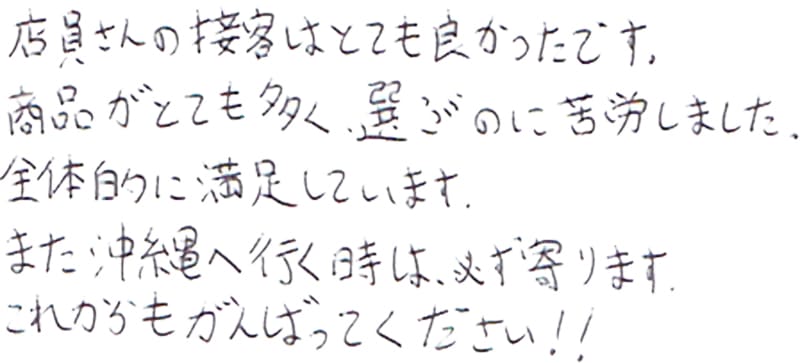 店員さんの接客はとても良かったです。
商品がとても多く、選ぶのに苦労しました。
全体的に満足しています。
また沖縄へ行く時は、必ず寄ります。
これからもがんばってください!!